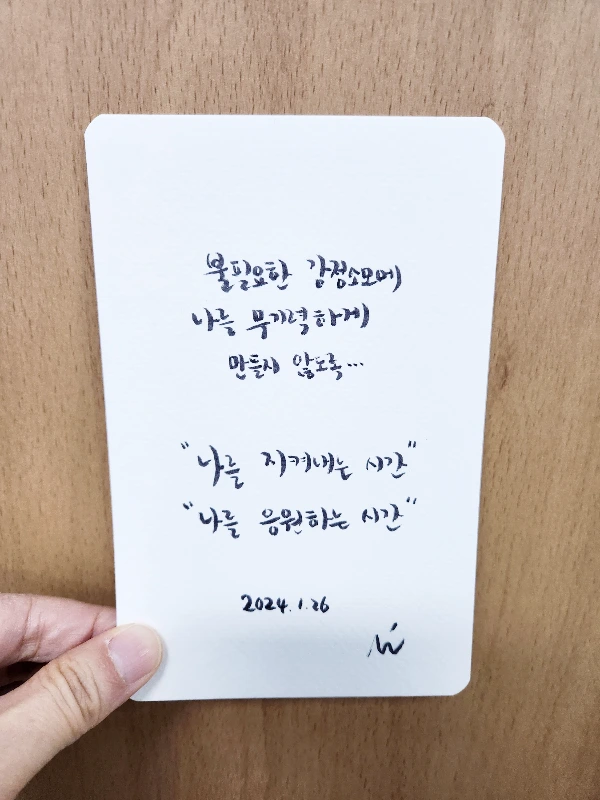 불필요한 감정소모에
나를 무기력하게
만들지 않도록...
"나를 지켜내는 시간"
"나를 응원하는 시간"
2024.1.26